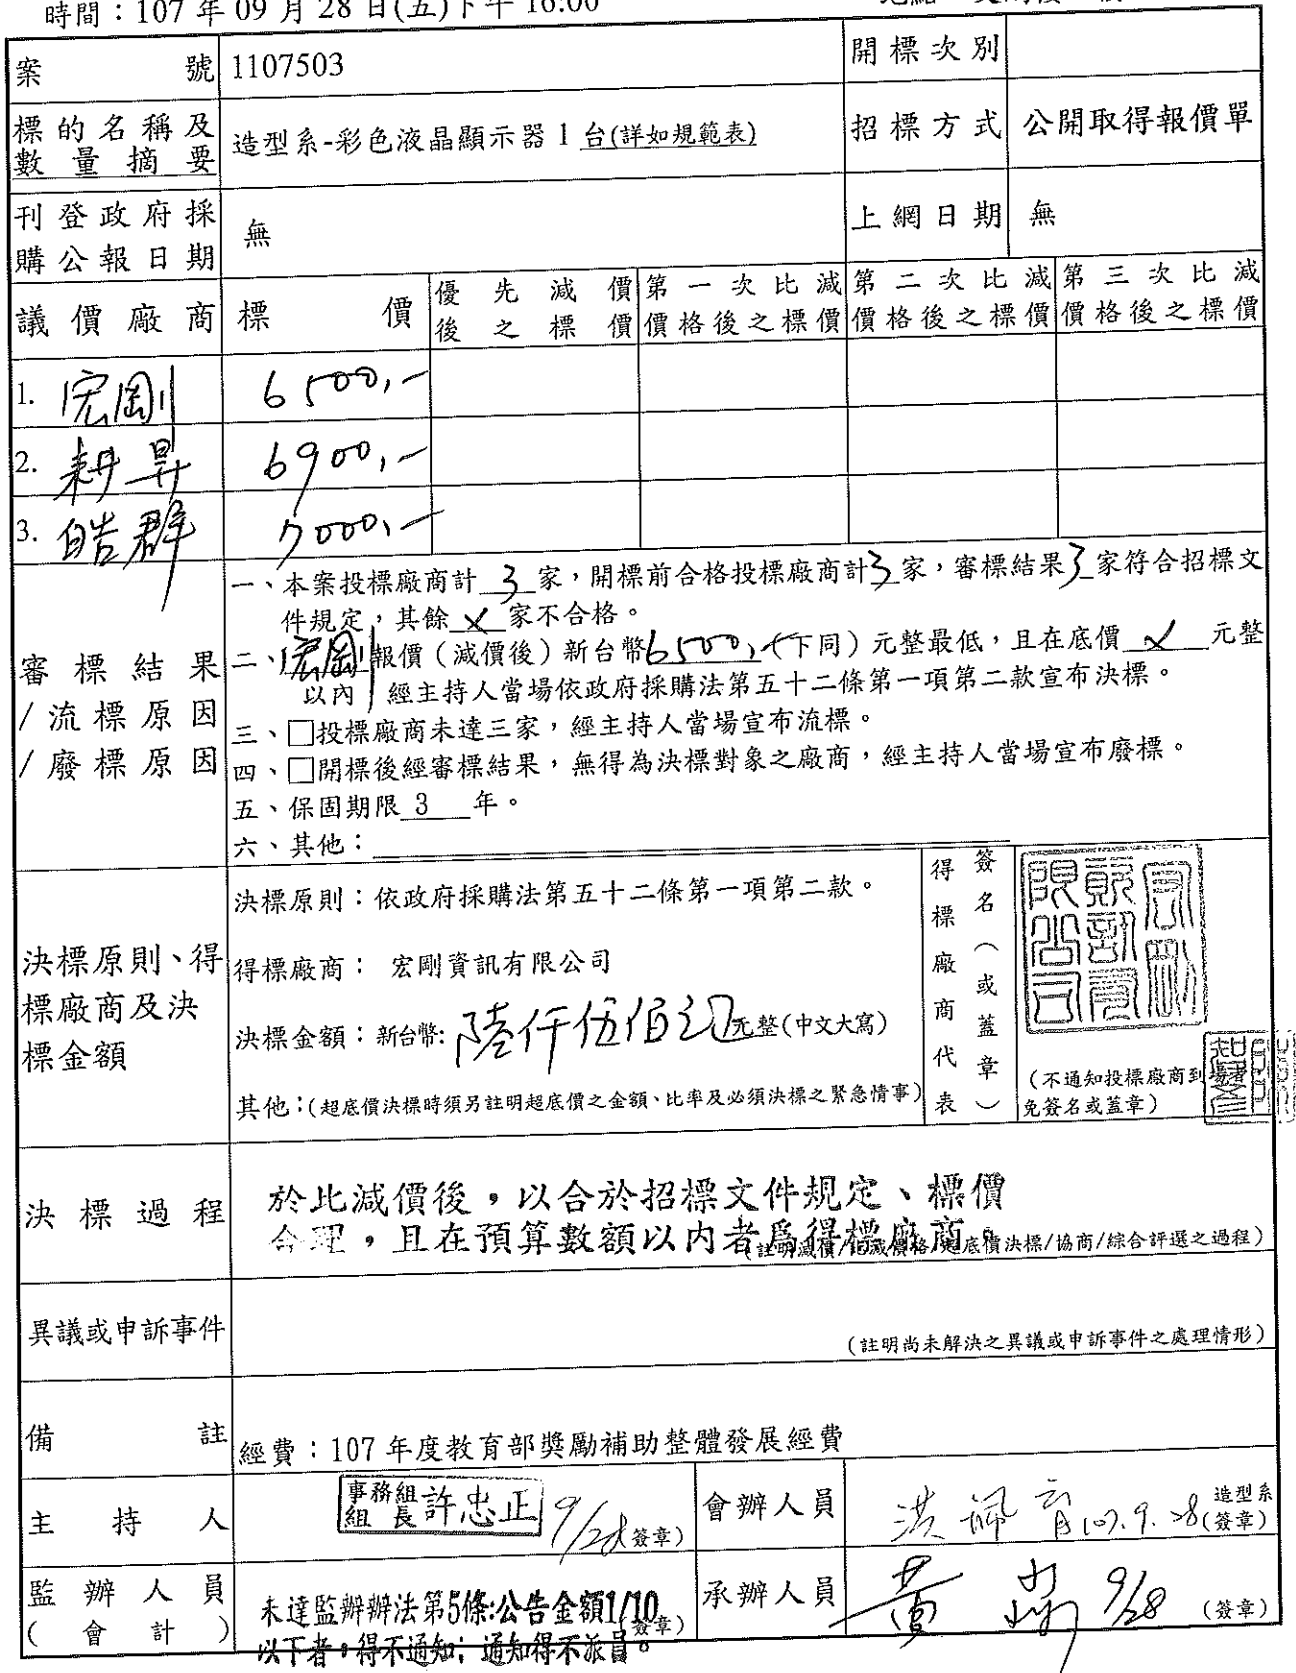 時間：107 年 09 月 28 日(五)下午 16:00
案號 1107503 開標次別
標的名稱及數量摘要 造型系-彩色液晶顯示器 1 台(詳如規範表) 招標方式 公開取得報價單
刊登政府採購公報日期 無 上網日期 無
議價廠商 標價 優先減價後之標價 第一次比減價格後之標價 第二次比減價格後之標價 第三次比減價格後之標價
1. 宏剛 6500,-
2. 耕昇 6900,-
3. 皓群 7000,-
審標結果/流標原因/廢標原因
一、本案投標廠商計 3 家，開標前合格投標廠商計3家，審標結果3家符合招標文
件規定，其餘 × 家不合格。
二、宏剛報價（減價後）新台幣6500,-（下同）元整最低，且在底價 × 元整
以內 經主持人當場依政府採購法第五十二條第一項第二款宣布決標。
三、□投標廠商未達三家，經主持人當場宣布流標。
四、□開標後經審標結果，無得為決標對象之廠商，經主持人當場宣布廢標。
五、保固期限 3 年。
六、其他：
決標原則、得標廠商及決標金額
決標原則：依政府採購法第五十二條第一項第二款。
得標廠商： 宏剛資訊有限公司
決標金額：新台幣:陸仟伍佰元整(中文大寫)
其他：(超底價決標時須另註明超底價之金額、比率及必須決標之緊急情事)
得標廠商代表
簽名（或蓋章）
宏剛資訊有限公司
(不通知投標廠商到場者
免簽名或蓋章)
決標過程
於比減價後，以合於招標文件規定、標價
合理，且在預算數額以內者為得標廠商。
(註明減價/比減價格/超底價決標/協商/綜合評選之過程)
異議或申訴事件
(註明尚未解決之異議或申訴事件之處理情形)
備註 經費：107 年度教育部獎勵補助整體發展經費
主持人 事務組組長 許忠正 9/28 (簽章) 會辦人員 洪珮育 107.9.28 造型系 (簽章)
監辦人員(會計)
未達監辦辦法第5條:公告金額1/10
以下者。得不通知；通知得不派員。
(簽章)
承辦人員 黃 9/28 (簽章)